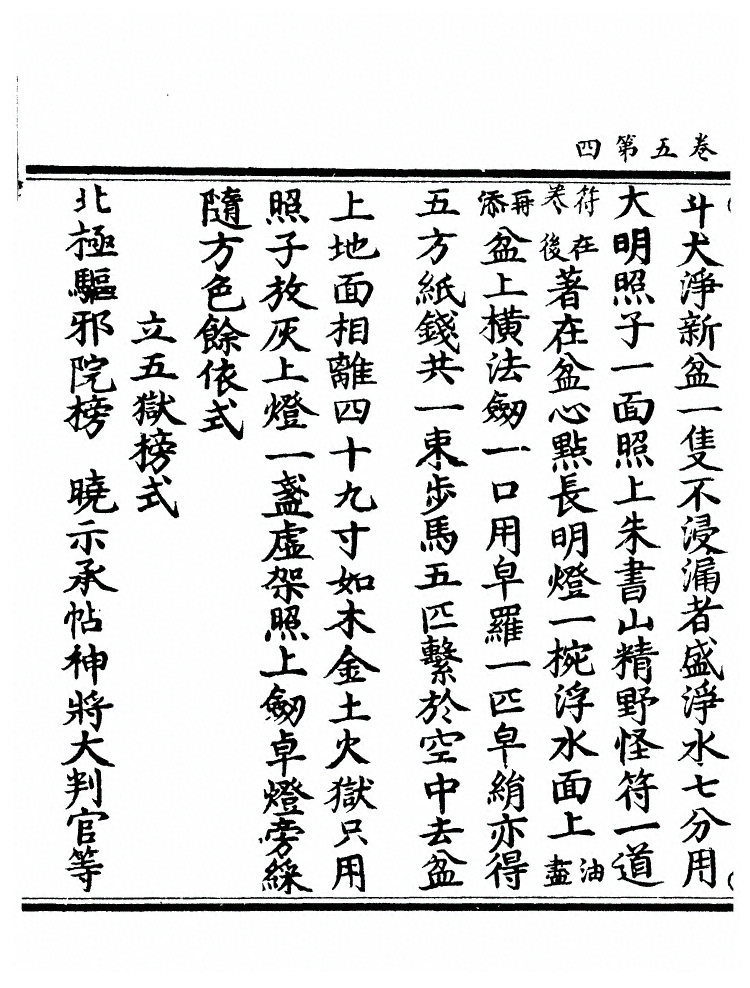 卷五第四
斗犬淨新盆一隻不浸漏者盛淨水七分用
大明照子一面照上朱書山精野怪符一道
符在卷後著在盆心點長明燈一椀浮水面上油盡
再添盆上橫法劒一口用皁羅一匹皁絹亦得
五方紙錢共一束步馬五匹繫於空中去盆
上地面相離四十九寸如木金土火獄只用
照子放灰上燈一盞虛架照上劒卓燈旁綵
隨方色餘依式
立五獄榜式
北極驅邪院榜　曉示承帖神將大判官等